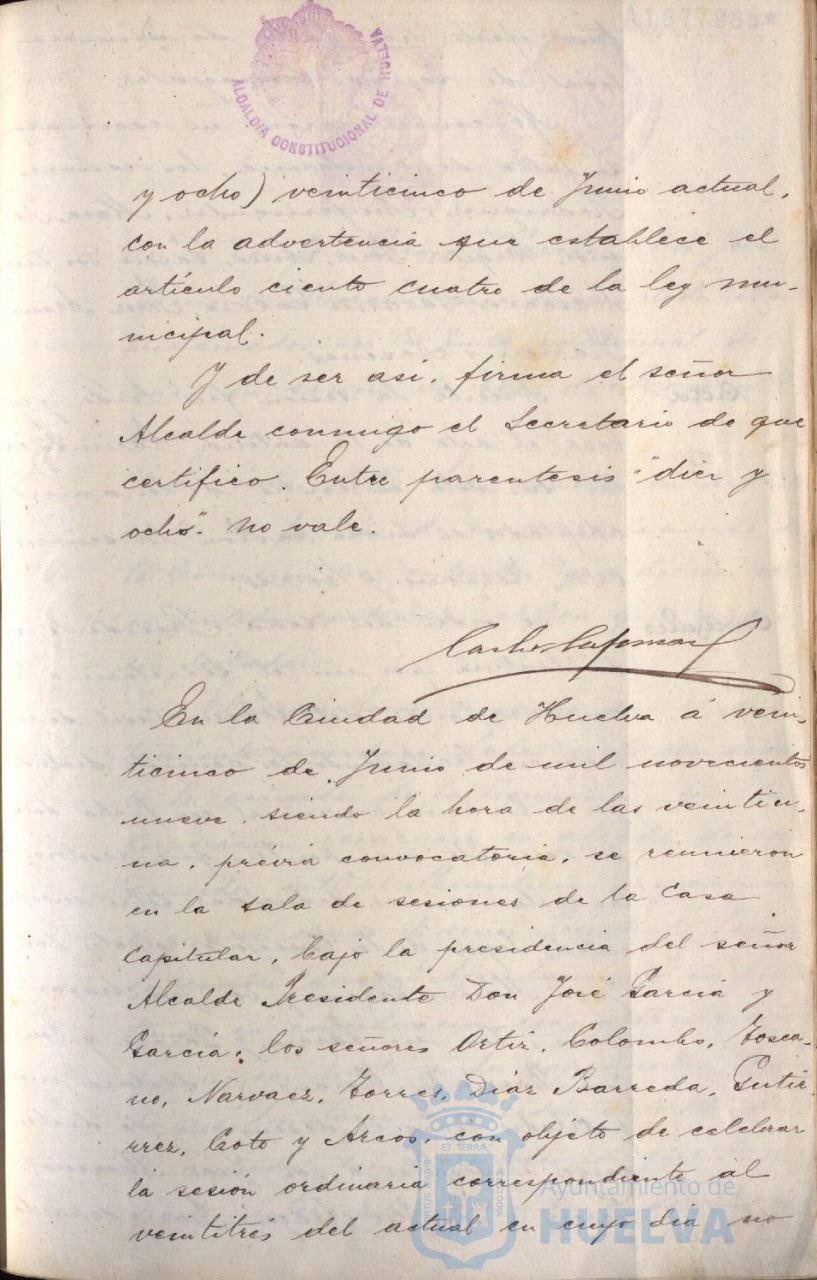 ALCALDIA CONSTITUCIONAL DE HUELVA
y ocho) veinticinco de Junio actual,
con la advertencia que establece el
artículo ciento cuatro de la ley mu-
nicipal.
Y de ser así, firma el señor
Alcalde conmigo el Secretario de que
certifico. Entre parentesis "diez y
ocho". no vale.
En la Ciudad de Huelva á vein-
ticinco de Junio de mil novecientos
nueve, siendo la hora de las veintiu-
na, prévia convocatoria, se reunieron
en la sala de sesiones de la Casa
Capitular, bajo la presidencia del señor
Alcalde Presidente Don José García y
García, los señores Ortiz, Colombo, Tosca-
no, Narvaez, Torres, Diaz Barreda, Gutié-
rrez, Coto y Arcos, con objeto de celebrar
la sesión ordinaria correspondiente al
veintitrés del actual en cuyo día no
Ayuntamiento de
HUELVA